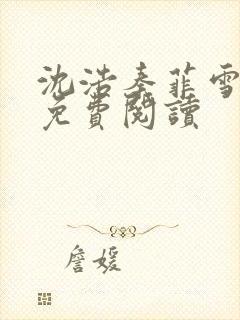 沈浩秦菲雪
免費閱讀
詹媛